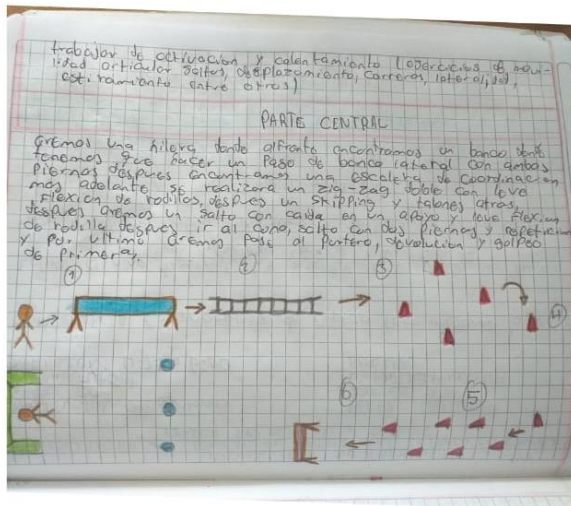 trabajar de activacion y calentamiento (ejercicios de movi-
lidad articular saltos, desplazamiento, carreras, lateralidad,
estiramiento entre otros)
PARTE CENTRAL
aremos una hilera donde alfrente encontramos un banco donde
tenemos que hacer un Paso de banco lateral con ambas
piernas despues encontramos una escalera de coordinacion
mas adelante se realizara un zig-zag doble con leve
flexion de rodillas, despues un shipping y talones atras,
despues aremos un salto con caida en un apoyo y leve flexion
de rodilla despues ir al cono, salto con dos piernas y repeticion
y por ultimo aremos pase al portero, devolucion y golpeo
de primera.
1 2 3
4
6 5